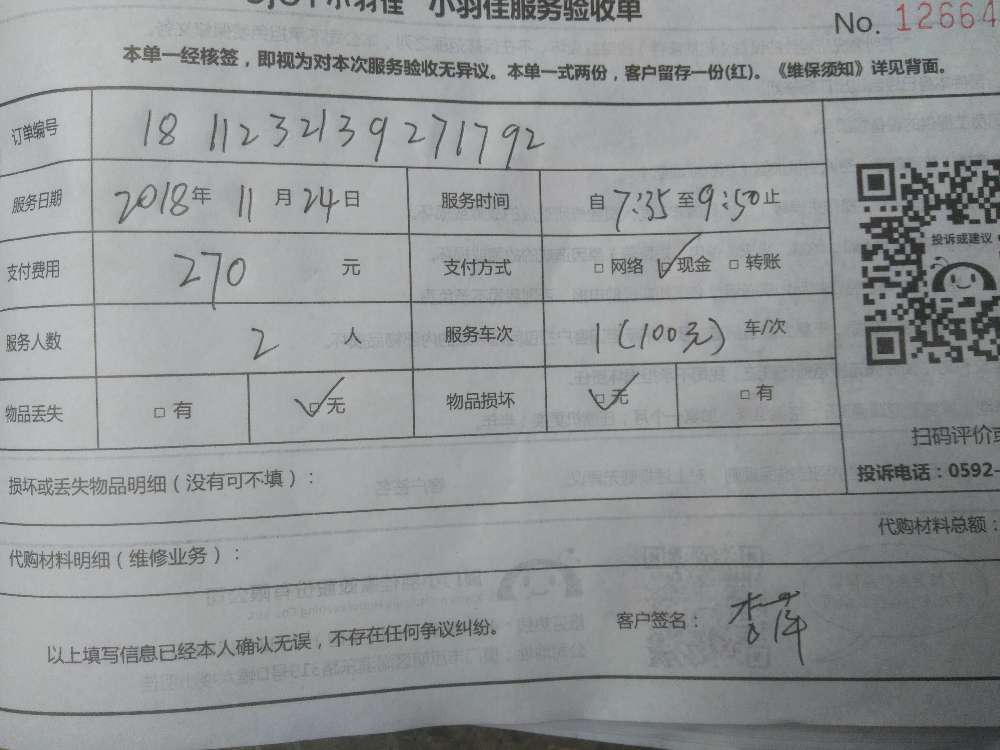 小羽佳 小羽佳服务验收单
No. 12664
本单一经核签，即视为对本次服务验收无异议。本单一式两份，客户留存一份(红)。《维保须知》详见背面。
订单编号 1811232139271792
服务日期 2018年 11月24日 服务时间 自7:35至9:50止
投诉或建议
支付费用 270 元 支付方式 □网络 ☑现金 □转账
服务人数 2 人 服务车次 1(100元) 车/次
物品丢失 □有 ☑无 物品损坏 ☑无 □有
扫码评价或
损坏或丢失物品明细（没有可不填）： 投诉电话：0592-
代购材料总额：
代购材料明细（维修业务）：
以上填写信息已经本人确认无误，不存在任何争议纠纷。 客户签名： 李萍